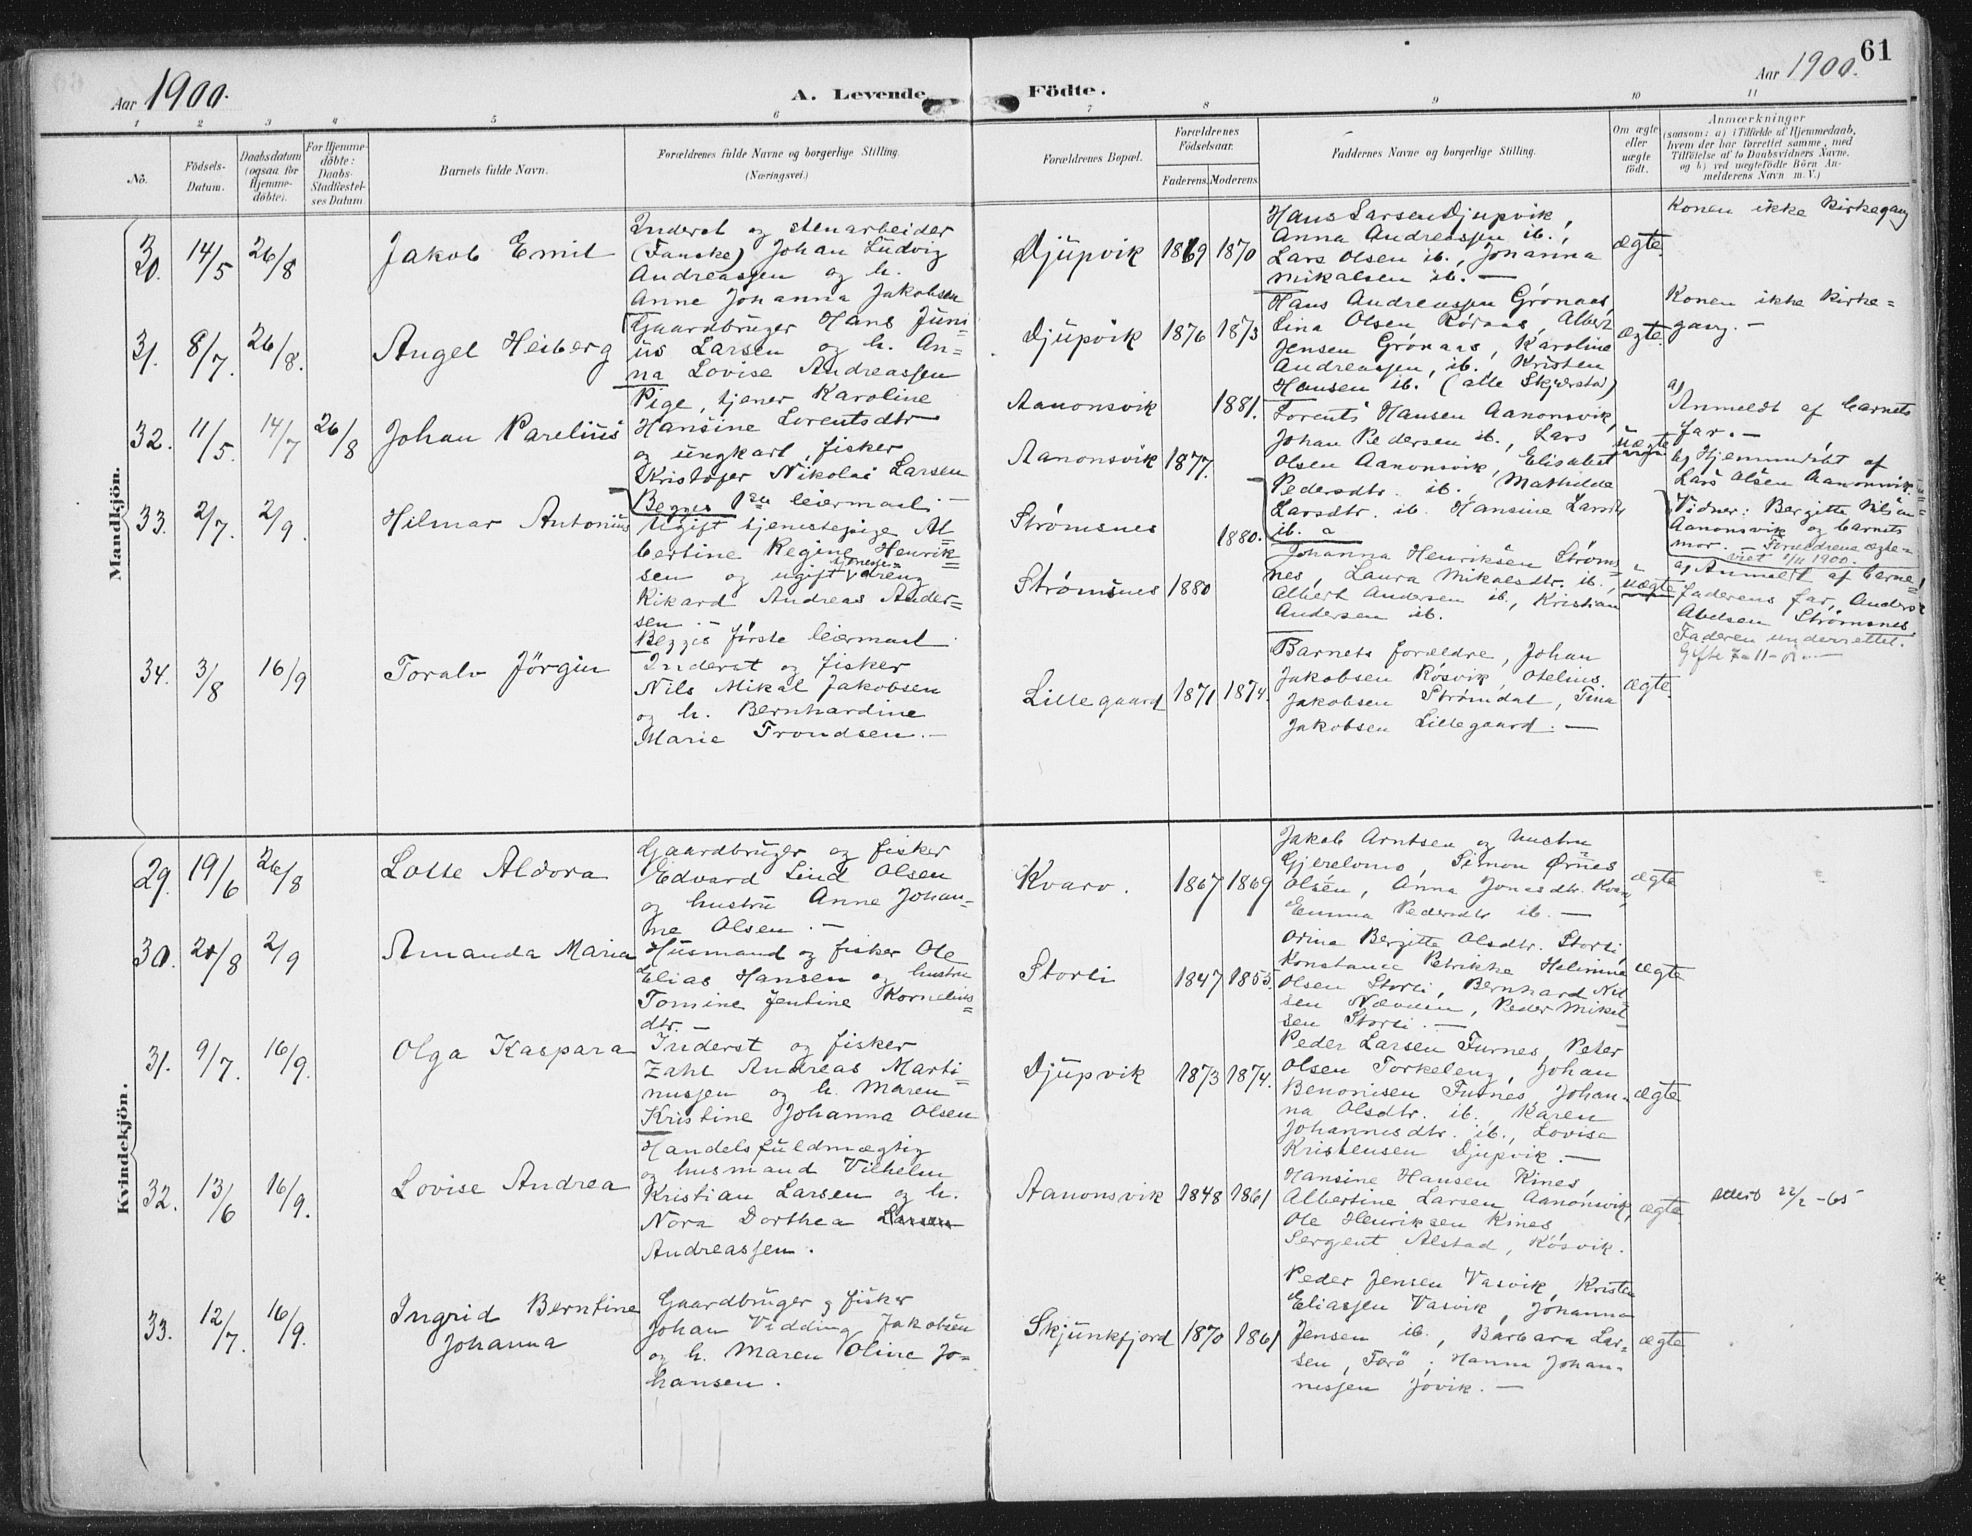 61
Aar 1900.
A. Levende Födte.
Aar 1900.
1 2 3 4 5 6 7 8 9 10 11
No.
Födsels-
Datum.
Daabsdatum
(ogsaa for
Hjemme-
døbte).
For Hjemme-
døbte:
Daabs-
Stadfæstel-
ses Datum
Barnets fulde Navn.
Forældrenes fulde Navne og borgerlige Stilling.
(Næringsvei.)
Forældrenes Bopæl.
Forældrenes
Födselsaar.
Faderens. Moderens.
Faddernes Navne og borgerlige Stilling.
Om ægte
eller
uægte
födt.
Anmærkninger
(saasom: a) i Tilfælde af Hjemmedaab,
hvem der har forrettet samme, med
Tilföielse af to Daabsvidners Navne,
og b) ved uægtefödte Börn An-
melderens Navn m. V.)
Mandkjön.
30. 14/5 26/8
Jakob Emil
Inderst og stenarbeider
(Fauske) Johan Ludvig
Andreassen og h.
Anne Johanna Jakobsen
Djupvik 1869 1870
Hans Larsen Djupvik,
Anna Andreassen ib.,
Lars Olsen ib., Johanna
Mikalsen ib. —
ægte.
Konen ikke kirkegang
31. 8/7. 26/8.
Angel Heiberg
Gaardbruger Hans Juni=
us Larsen og h. An=
na Lovise Andreassen
Djupvik 1876 1873
Hans Andreassen Grönaas,
Lina Olsen Röraas, Albert
Jensen Grönaas, Karoline
Andreassen, ib. Kristen
Hansen ib. (alle Skjerstad)
ægte.
Konen ikke kirke=
gang. —
32. 11/5. 14/7 26/8
Johan Parelius
Pige, tjener Karoline
Hansine Lorentsdtr
og ungkarl, fisker
Kristofer Nikolai Larsen
Begges 1ste leiermaal. —
Aanonsvik 1881.
Aanonsvik 1877.
Lorents Hansen Aanonsvik,
Johan Pedersen ib., Lars
Olsen Aanonsvik, Elisabet
Pedersdtr. ib., Mathilde
Larsdtr. ib. Hansine Larsdtr
ib. a
uægte
a) Anmeldt af barnets
far. —
b) Hjemmedöbt af
Lars Olsen Aanonsvik.
Vidner: Bergitte Nilsen
Aanonsvik og barnets
mor. — Forældrene ægte=
viet 1/11 1900.
33. 2/7. 2/9.
Hilmar Antonius
Ugift tjenestepige Al=
bertine Regine Henrik=
sen og ugift tjeneste=
dreng
Rikard Andreas Ander=
sen. —
Begges förste leiermaal
Strømsnes 1880.
Strømsnes 1880
Johanna Henriksen Ströms=
nes, Laura Mikalsdtr. ib.,
Albert Andersen ib., Kristian
Andersen ib.
uægte
a) Anmeldt af barne=
faderens far, Anders
Abelsen Strömsnes
Faderen underrettet.
Gifte 7-11-
34. 3/8 16/9
Toralv Jörgin
Inderst og fisker
Nils Mikal Jakobsen
og h. Bernhardine
Marie Trondsen. —
Lillegaard 1871 1874.
Barnets forældre, Johan
Jakobsen Rösvik, Otelius
Jakobsen Strömdal, Tina
Jakobsen Lillegaard. —
ægte.
Kvindekjön.
29. 19/6 26/8
Lotte Aldora
Gaardbruger og fisker
Edvard Lind Olsen
og hustru Anne Johan=
ne Olsen. —
Kvarv. 1867 1869
Jakob Arntsen og hustru
Simon Ørnes
Olsen, Anna Jonasdtr. Kvarv,
Emma Pedersdtr ib. —
ægte
30. 2/8 2/9
Amanda Maria
Husmand og fisker Ole
Elias Hansen og hustru
Tomine Jentine Kornelius=
dtr. —
Storli 1847 1855.
Orina Bergitte Olsdtr. Storli,
Konstance Petrikke Helmine
Olsen Storli, Bernhard Nil
sen Nævnen, Peder Mikal
sen Storli. —
ægte
31. 9/7. 16/9.
Olga Kaspara
Inderst og fisker
Zahl Andreas Marti=
nussen og h. Maren
Kristine Johanna Olsen
Djupvik 1873 1874.
Peder Larsen Furnes, Peter
Olsen Torkeleng, Johan
Benonisen Furnes, Johan=
na Olsdtr. ib. Karen
Johannesdtr. ib., Lovise
Kristensen Djupvik. —
ægte
32. 13/6 16/9.
Lovise Andrea
Handelsfuldmægtig
og husmand Vilhelm
Kristian Larsen og h.
Nora Dorthea Larsen
Andreassen.
Aanonsvik 1848 1861
Hansine Hansen Kines,
Albertine Larsen Aanonsvik,
Ole Henriksen Kines,
Sergent Alstad, Rösvik.
ægte
22/2 -65
33. 12/7. 16/9.
Ingrid Berntine
Johanna
Gaardbruger og fisker
Johan Vidding Jakobsen
og h. Maren Oline Jo=
hansen.
Skjunkfjord 1870 1861
Peder Jensen Vasvik, Kristen
Eliassen Vasvik, Johanna
Jensen ib., Barbara Lar=
sen, Farö; Hanna Johan=
nessen Jövik. —
ægte